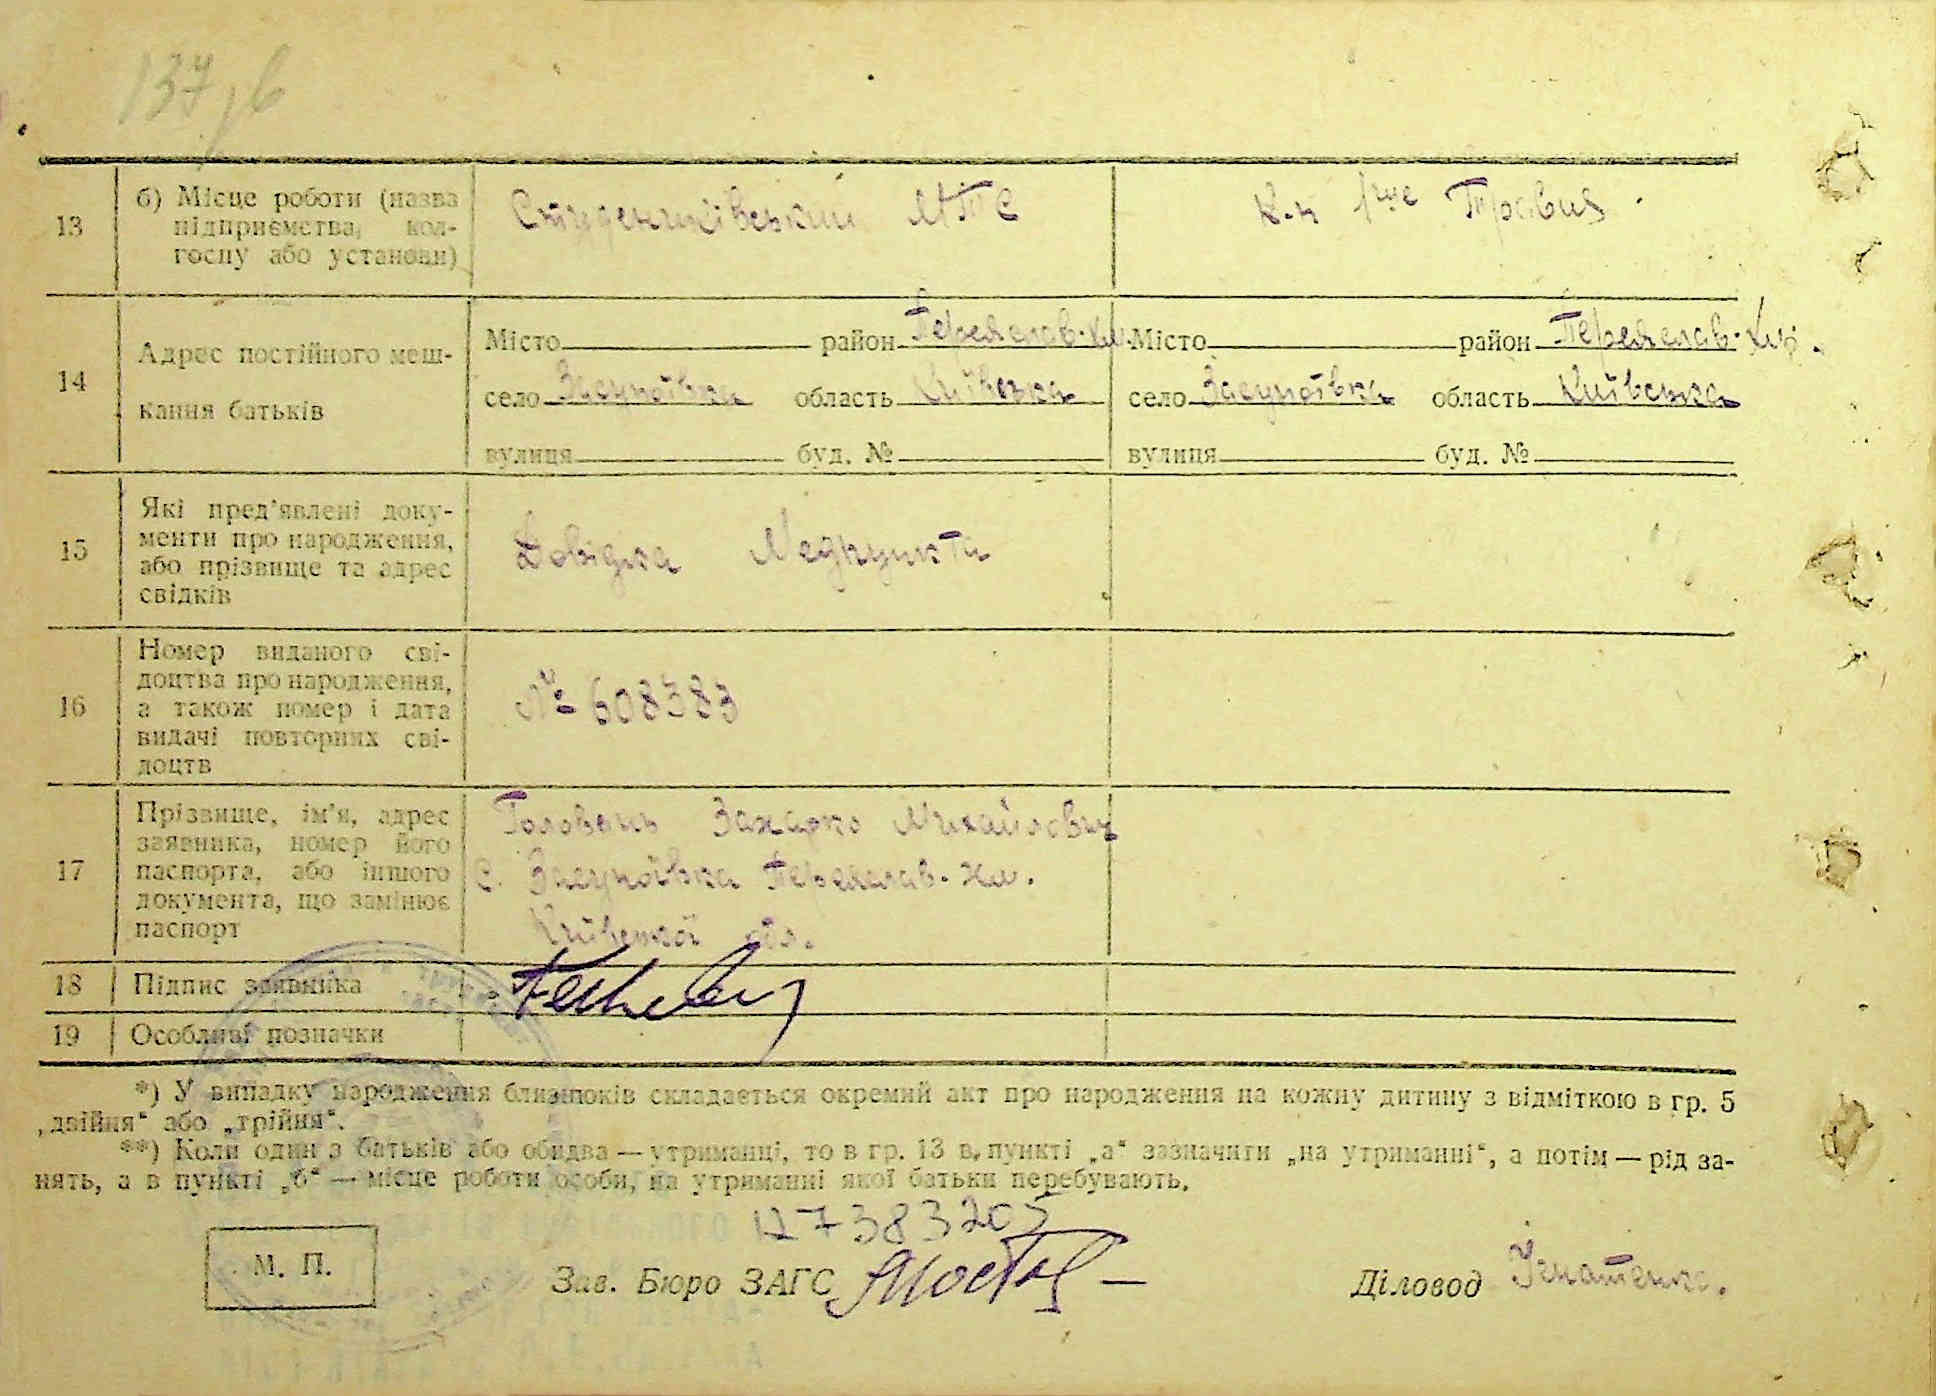 137,б
13
б) Місце роботи (назва
підприємства, кол-
госпу або установи)
Студениківський МТС
К-п 1ше Травня
14
Адрес постійного меш-
кання батьків
Місто район Переяслав-Хм.
село Засупоївка область Київська
вулиця буд. №
Місто район Переяслав-Хм.
село Засупоївка область Київська
вулиця буд. №
15
Які пред'явлені доку-
менти про народження,
або прізвище та адрес
свідків
Довідка Медпункта
16
Номер виданого сві-
доцтва про народження,
а також номер і дата
видачі повторних сві-
доцтв
№ 608383
17
Прізвище, ім'я, адрес
заявника, номер його
паспорта, або іншого
документа, що замінює
паспорт
Головань Захарко Михайлович
с. Засупоївка Переяслав-Хм.
Київської обл.
18
Підпис заявника
19
Особливі позначки
*) У випадку народження близнюків складається окремий акт про народження на кожну дитину з відміткою в гр. 5
„двійня“ або „трійня“.
**) Коли один з батьків або обидва — утриманці, то в гр. 13 в, пункті „а“ зазначити „на утриманні“, а потім — рід за-
нять, а в пункті „б“ — місце роботи особи, на утриманні якої батьки перебувають.
127383205
М. П.
Зав. Бюро ЗАГС
Діловод Ігнатенко.